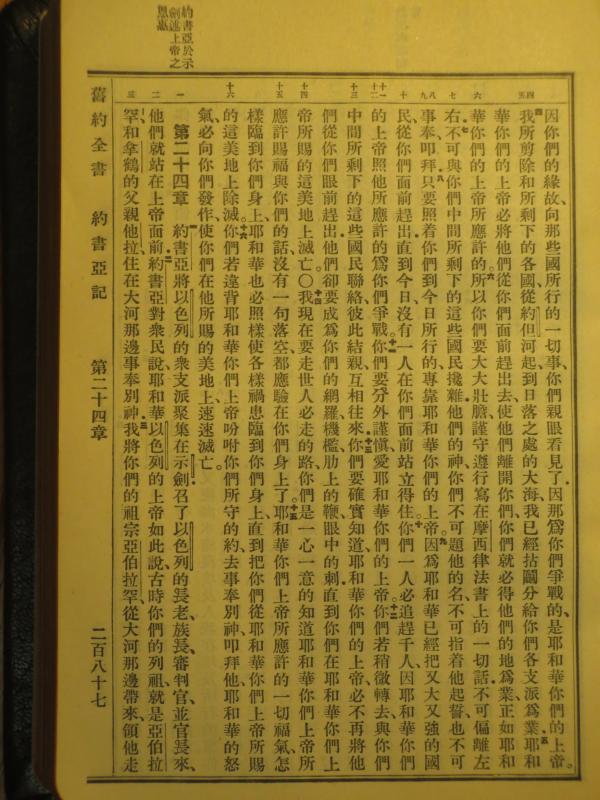 因你們的緣故、向那些國所行的一切事、你們親眼看見了、因那爲你們爭戰的、是耶和華你們的上帝。
四我所剪除和所剩下的各國、從約但河起到日落之處的大海、我已經拈鬮分給你們各支派爲業、五耶和
華你們的上帝必將他們從你們面前趕出去、使他們離開你們、你們就必得他們的地爲業、正如耶和
華你們的上帝所應許的。六所以你們要大大壯膽、謹守遵行寫在摩西律法書上的一切話、不可偏離左
右。七不可與你們中間所剩下的這些國民攙雜、他們的神、你們不可題他的名、不可指着他起誓、也不可
事奉、叩拜、八只要照着你們到今日所行的、專靠耶和華你們的上帝。九因爲耶和華已經把又大又强的國
民、從你們面前趕出、直到今日、沒有一人在你們面前站立得住。十你們一人必追趕千人、因耶和華你們
的上帝照他所應許的、爲你們爭戰。十一你們要分外謹愼、愛耶和華你們的上帝。十二你們若稍微轉去、與你們
中間所剩下的這些國民聯絡、彼此結親、互相往來、十三你們要確實知道、耶和華你們的上帝必不再將他
們從你們眼前趕出、他們卻要成爲你們的網羅、機檻、肋上的鞭、眼中的刺、直到你們在耶和華你們上
帝所賜的這美地上滅亡。〇十四我現在要走世人必走的路、你們是一心一意的知道、耶和華你們上帝所
應許賜福與你們的話、沒有一句落空、都應驗在你們身上了。十五耶和華你們上帝所應許的一切福氣、怎
樣臨到你們身上、耶和華也必照樣使各樣禍患臨到你們身上、直到把你們從耶和華你們上帝所賜
的這美地上除滅。十六你們若違背耶和華你們上帝吩咐你們所守的約、去事奉別神、叩拜他、耶和華的怒
氣必向你們發作、使你們在他所賜的美地上、速速滅亡。
第二十四章 一約書亞將以色列的衆支派聚集在示劍、召了以色列的長老、族長、審判官、並官長來、
他們就站在上帝面前、二約書亞對衆民說、耶和華以色列的上帝如此說、古時你們的列祖、就是亞伯拉
罕和拿鶴的父親他拉、住在大河那邊事奉別神、三我將你們的祖宗亞伯拉罕、從大河那邊帶來、領他走
四
五
六
七
八
九
十
十一
十二
十三
十四
十五
十六
一
二
三
約書亞於示
劍述上帝之
恩惠
舊約全書 約書亞記 第二十四章 二百八十七